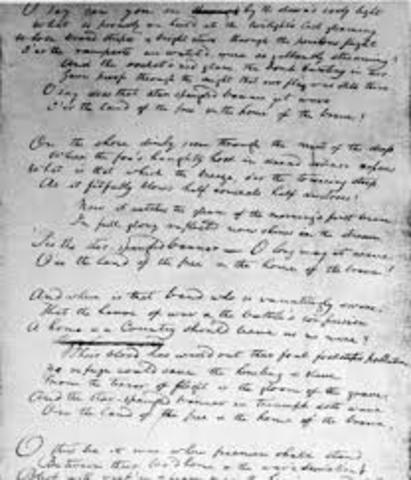 O say can you see by the dawn's early light
What so proudly we hail'd at the twilight's last gleaming
Whose broad stripes & bright stars through the perilous fight
O'er the ramparts we watch'd, were so gallantly streaming?
And the rocket's red glare, the bomb bursting in air
Gave proof through the night that our flag was still there
O say does that star spangled banner yet wave
O'er the land of the free & the home of the brave?
On the shore dimly seen through the mists of the deep
Where the foe's haughty host in dread silence reposes
What is that which the breeze, o'er the towering steep
As it fitfully blows half conceals half discloses?
Now it catches the gleam of the morning's first beam
In full glory reflected now shines in the stream
'Tis the star-spangled banner — O long may it wave
O'er the land of the free & the home of the brave!
And where is that band who so vauntingly swore,
That the havoc of war & the battle's confusion
A home & a Country should leave us no more?
Their blood has wash'd out their foul footsteps pollution
No refuge could save the hireling & slave
From the terror of flight or the gloom of the grave
And the star-spangled banner in triumph doth wave
O'er the land of the free & the home of the brave.
O thus be it ever when freemen shall stand
Between their lov'd home & the war's desolation!